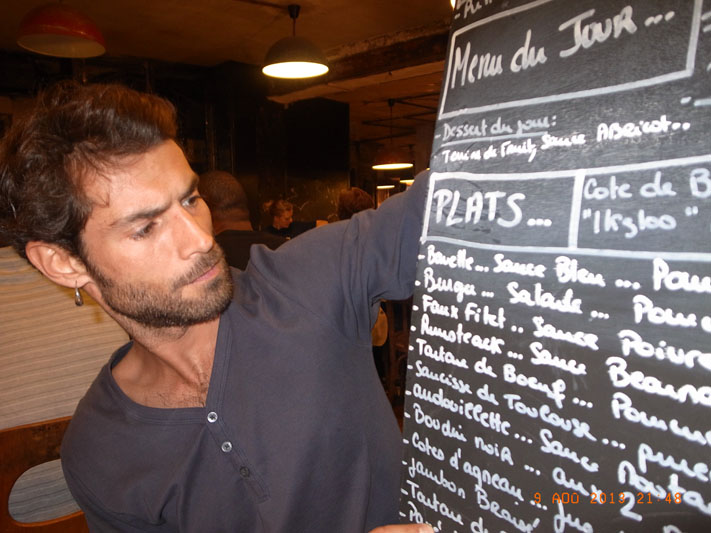 Menu du JOUR...
Dessert du jour:
de Fruits, Sauce ABricot..
PLATS... Cote de B
"1kg100"
- Bavette... Sauce Bleu... Pom
- Burger... Salade... Pom
- Faux Filet.. Sauce Poivre
- Rumsteack... Sauce Bearna
- Tartare de Boeuf... Pomm
- Saucisse de Toulouse... puree
- andouillette... Sauce Moutar
- Boudin noir... aux 2
- Cotes d'agneau... Jus
- jambon Beauc
- Tartare de
9 AOO 2013 21:48